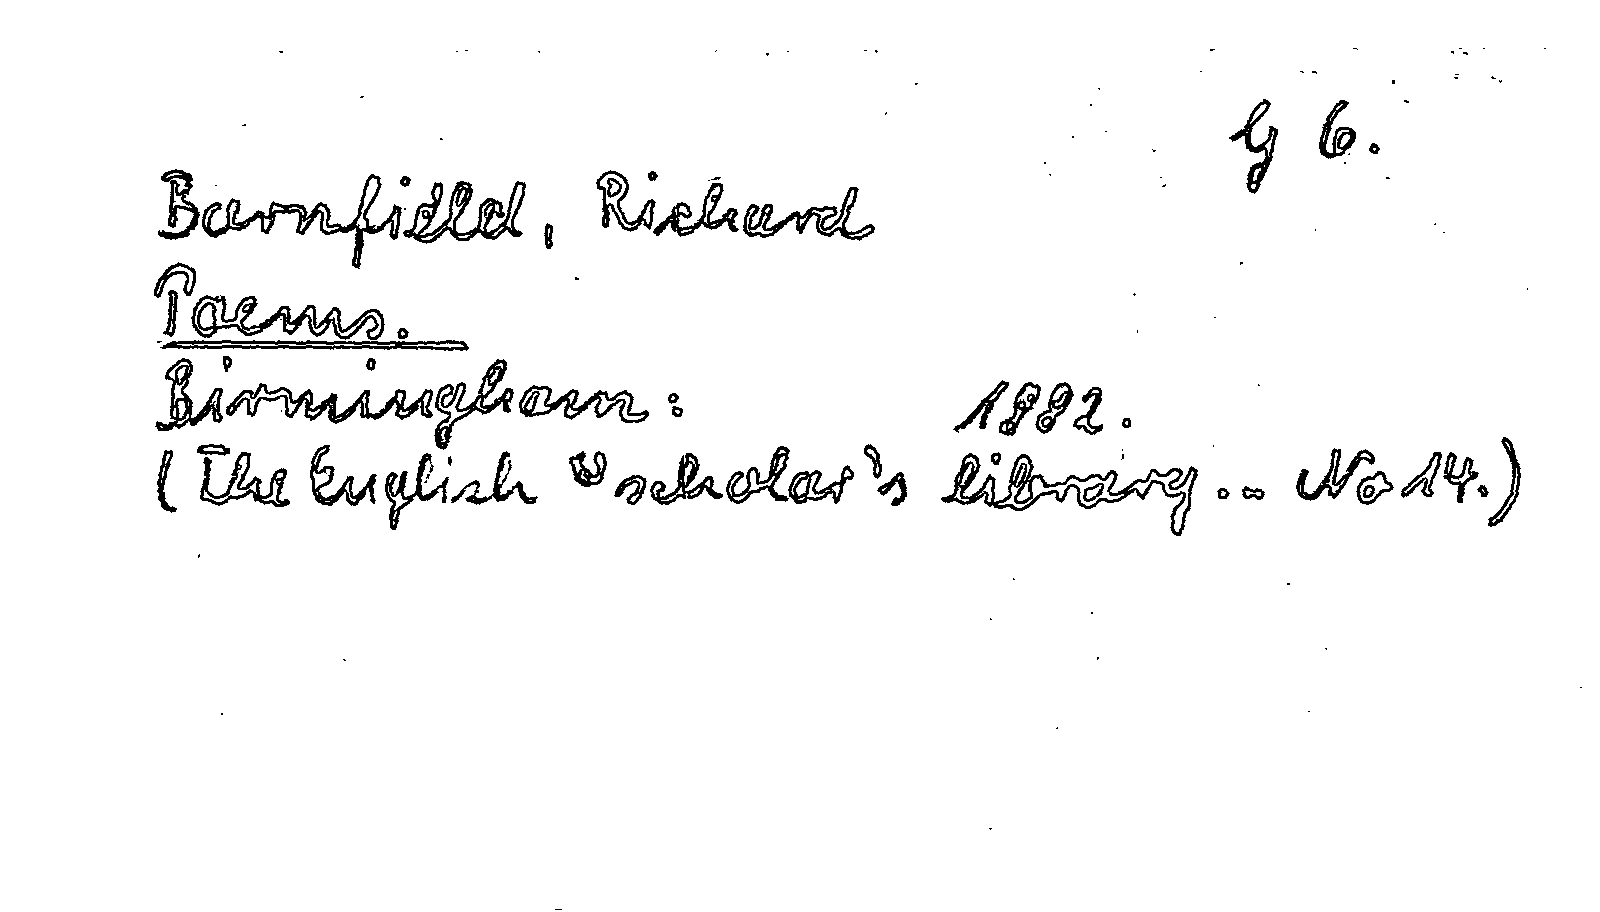 G 6.
Barnfield, Richard
Poems.
Birmingham: 1882.
(The English scholar's library... No 14.)